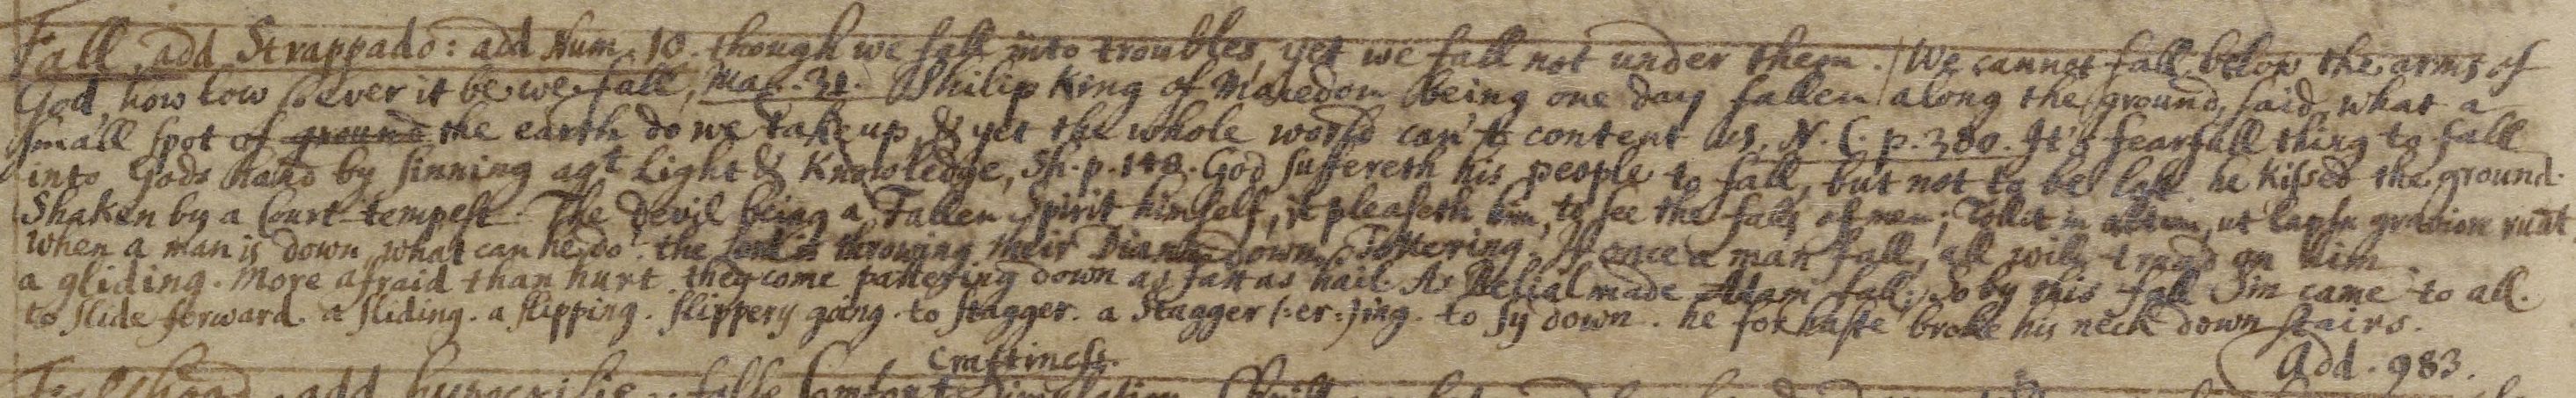 Fall, add Strappado: add Num. 10. though we fall into troubles, yet we fall not under them. We cannot fall below the arms of
God, how low soever it be we fall, Mar. 31. Philip King of Macedon being one day fallen along the ground, said, what a
small spot of ground the earth do we take up, & yet the whole world can't content us. N. C. p. 380. It's fearfull thing to fall
into Gods hand by sinning agt Light & Knowledge, Sh. p. 148. God suffereth his people to fall, but not to be he kissed the ground.
Shaken by a Court-tempest. The Devil being a Fallen Spirit himself, it pleaseth him, to see the falls of men; Tollit in altum, ut lapsu graviore ruat
when a man is down, what can he do? the throwing their Diana down. Tottering. If once a man fall, all will tread on him.
a gliding. More afraid than hurt. they come pattering down as fast as hail. As Belial made Adam fall; So by this fall Sin came to all.
to slide forward. a sliding. a slipping. slippery going. to stagger. a Stagger (:er:)ing. to sy down. he for haste broke his neck down stairs.
Add. 983.
Craftiness.
Falshood, add hypocrisie. false